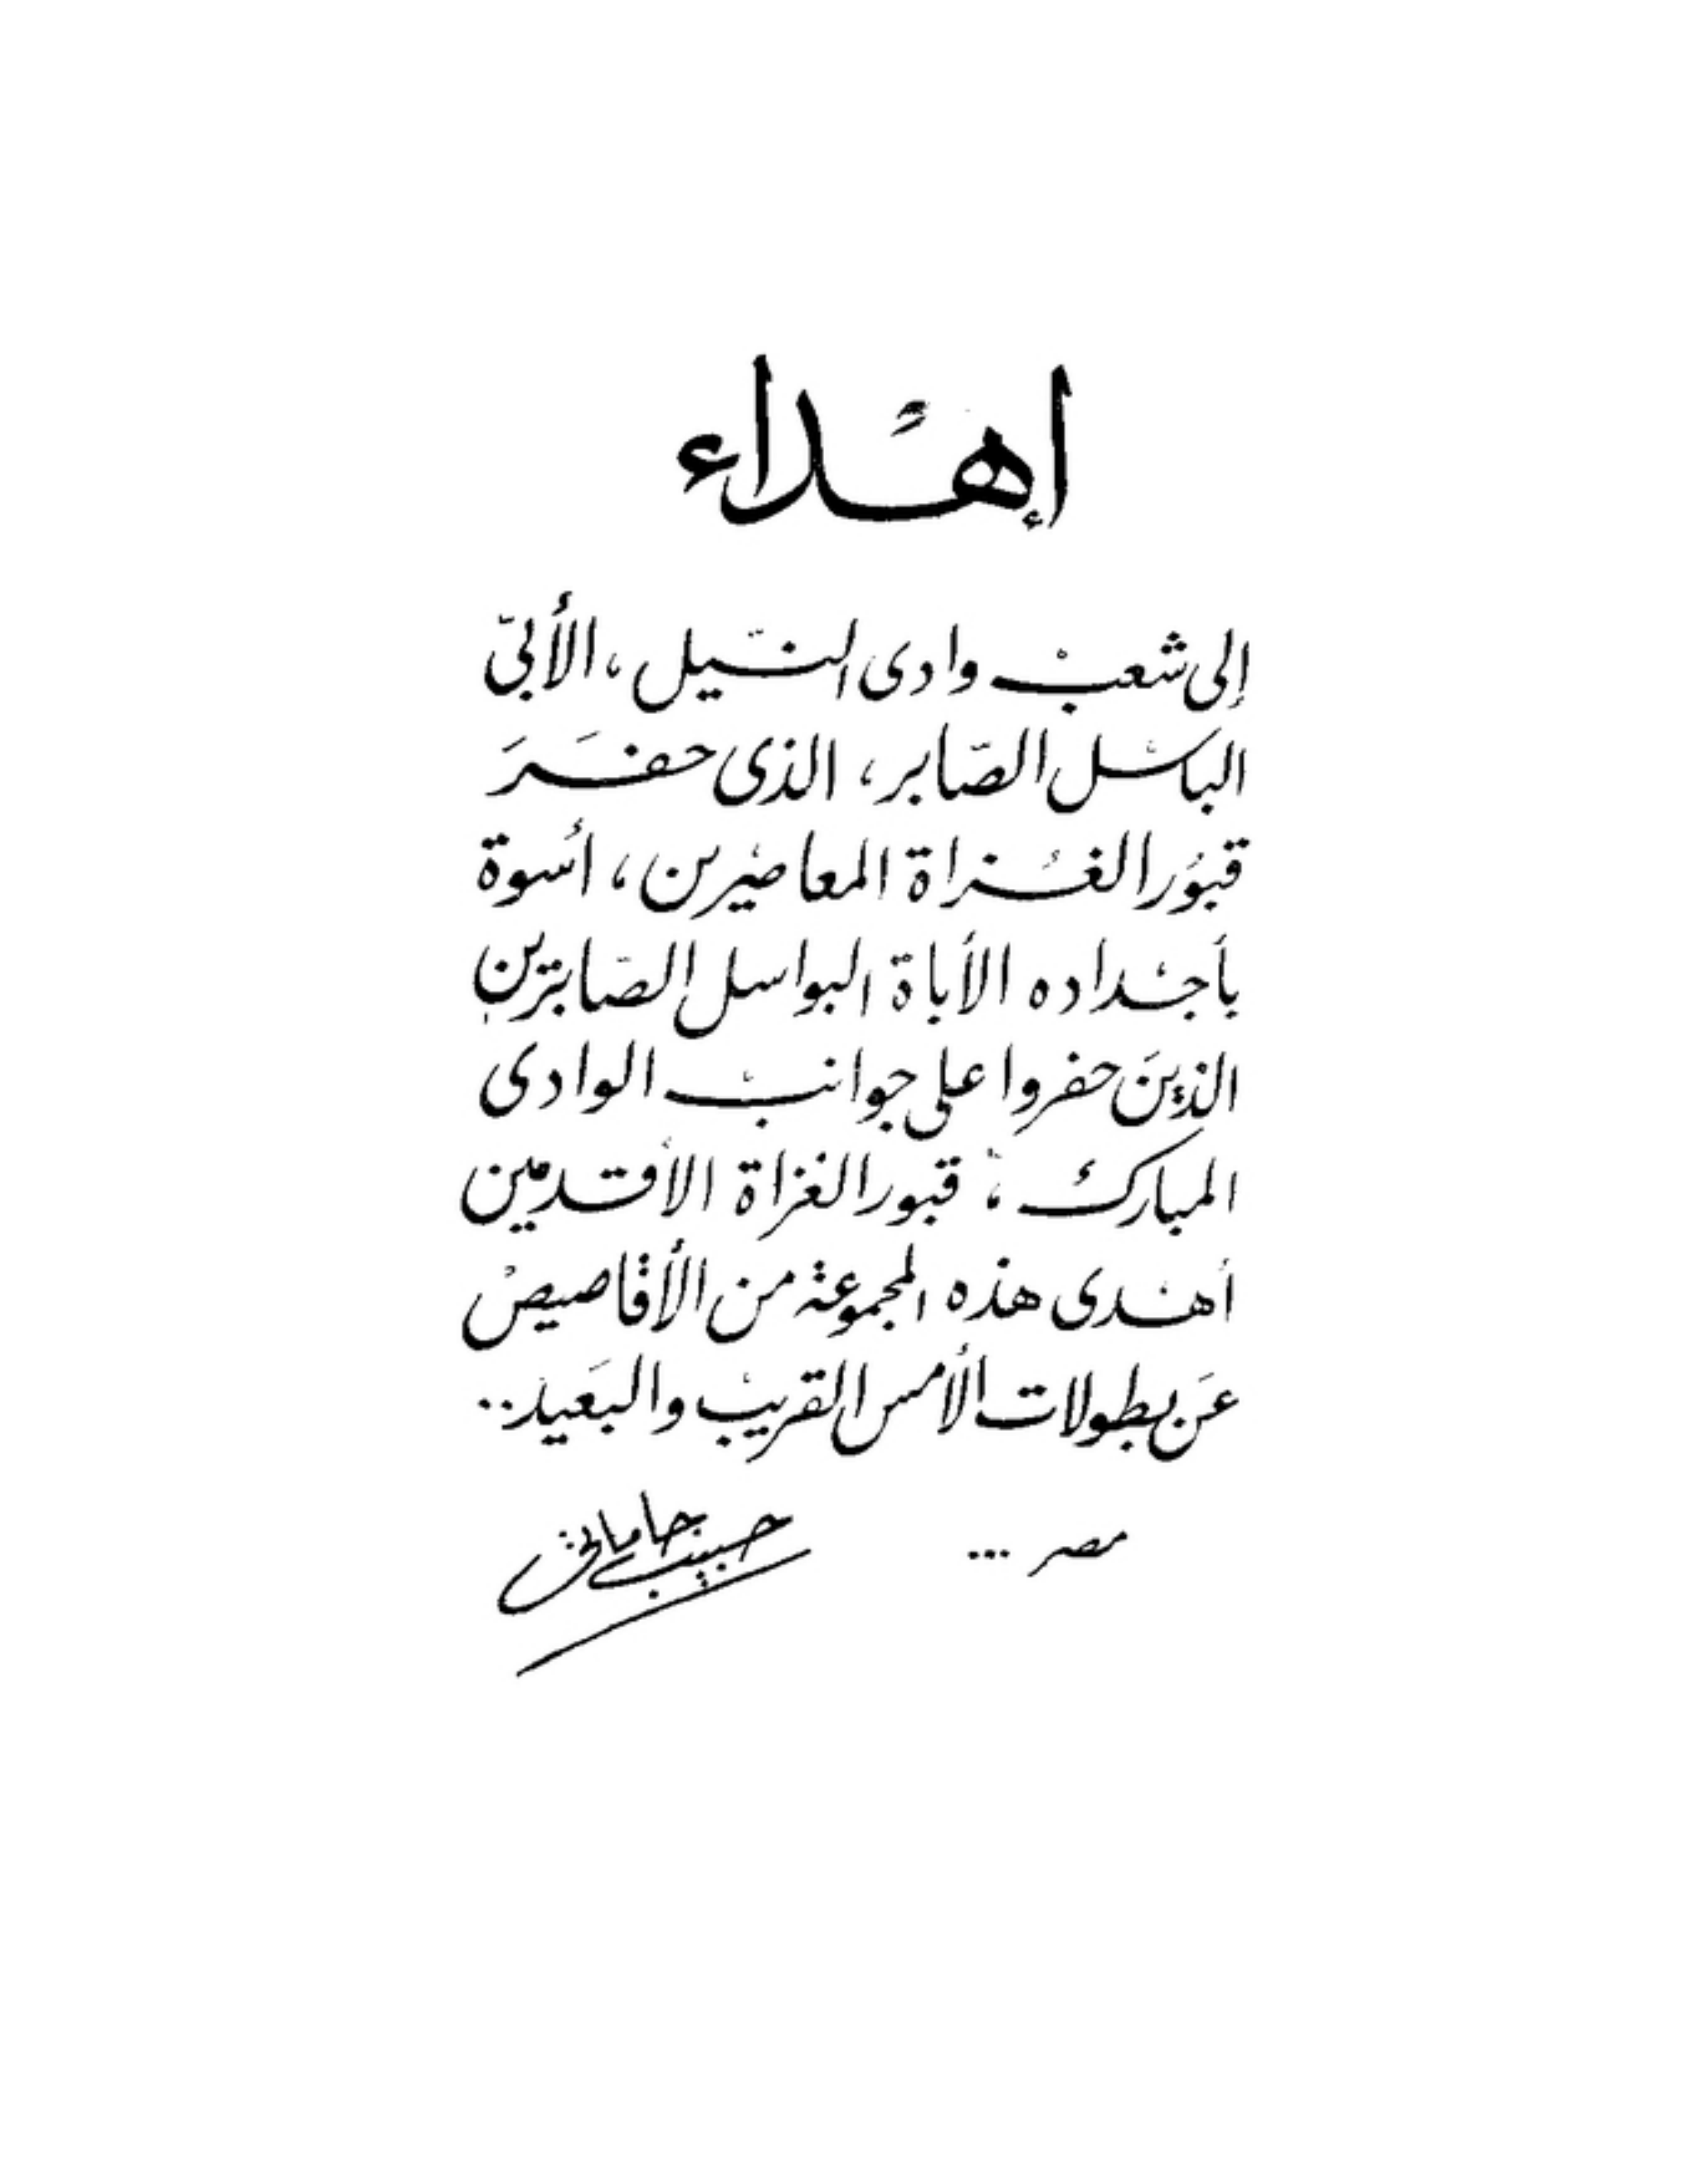 إهداء
إلى شعب وادى النّيل ، الأبىّ
الباسل الصّابر ، الذى حفَرَ
قبُور الغُزاة المعاصرين ، أُسوة
بأجداده الأباة البواسل الصّابرين
الذينَ حفروا على جوانب الوادى
المبارك ، قبور الغزاة الأقدمين
أهدى هذه المجموعة من الأقاصيص
عَن بطولات الأمس القريب والبَعيد ..
مصر ...
حبيب جاماتى